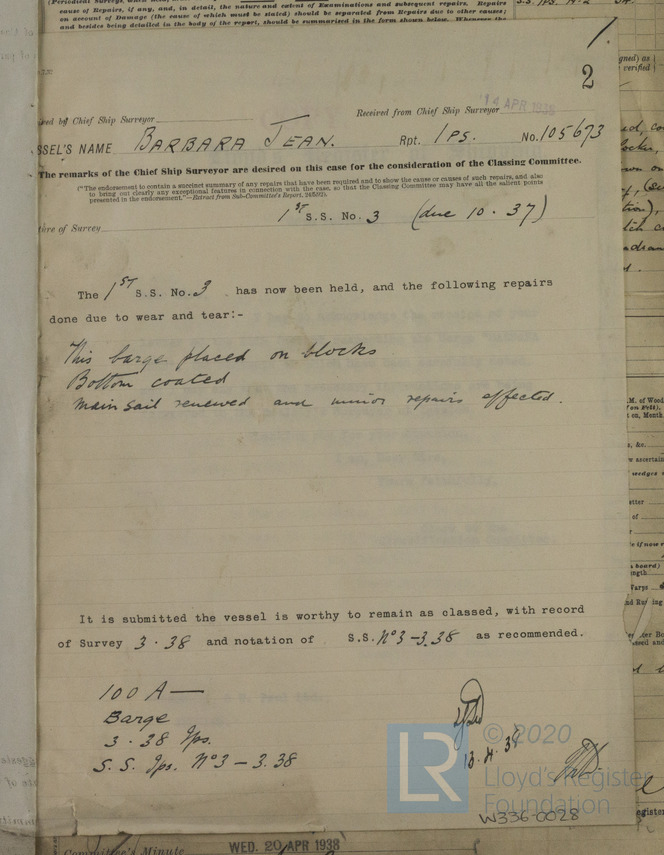 (Periodical Surveys, when held,
cause of Repairs, if any, and, in detail, the nature and extent of Examinations and subsequent repairs. Repairs
on account of Damage (the cause of which must be stated) should be separated from Repairs due to other causes;
and besides being detailed in the body of the report, should be summarised in the form shown below. Whenever the
1.
2
14 APR 1938
ired by Chief Ship Surveyor
Received from Chief Ship Surveyor
SSEL'S NAME BARBARA JEAN. Rpt. IPS. No. 105673
The remarks of the Chief Ship Surveyor are desired on this case for the consideration of the Classing Committee.
("The endorsement to contain a succinct summary of any repairs that have been required and to show the cause or causes of such repairs, and also
to bring out clearly any exceptional features in connection with the case, so that the Classing Committee may have all the salient points
presented in the endorsement."—Extract from Sub-Committee's Report,
ture of Survey 1ST S.S. No. 3 (due 10.37)
The 1ST S.S. No. 3 has now been held, and the following repairs
done due to wear and tear:-
This barge placed on blocks
Bottom coated
Main sail renewed and minor repairs effected.
It is submitted the vessel is worthy to remain as classed, with record
of Survey 3.38 and notation of S.S. No 3-3.38 as recommended.
100 A—
Barge
3.38 Ips.
S.S. Ips. No 3-3.38
13.4.38
LR © 2020
Lloyd's Register
Foundation
W336-0028
Committee's Minute WED. 20 APR 1938